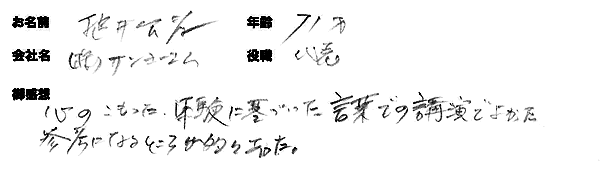 お名前 年齢 71才
会社名 (株)サンホーム 役職 代表
御感想
心のこもった、体験に基づいた言葉での講演でよかった
参考になるところが多々あった。